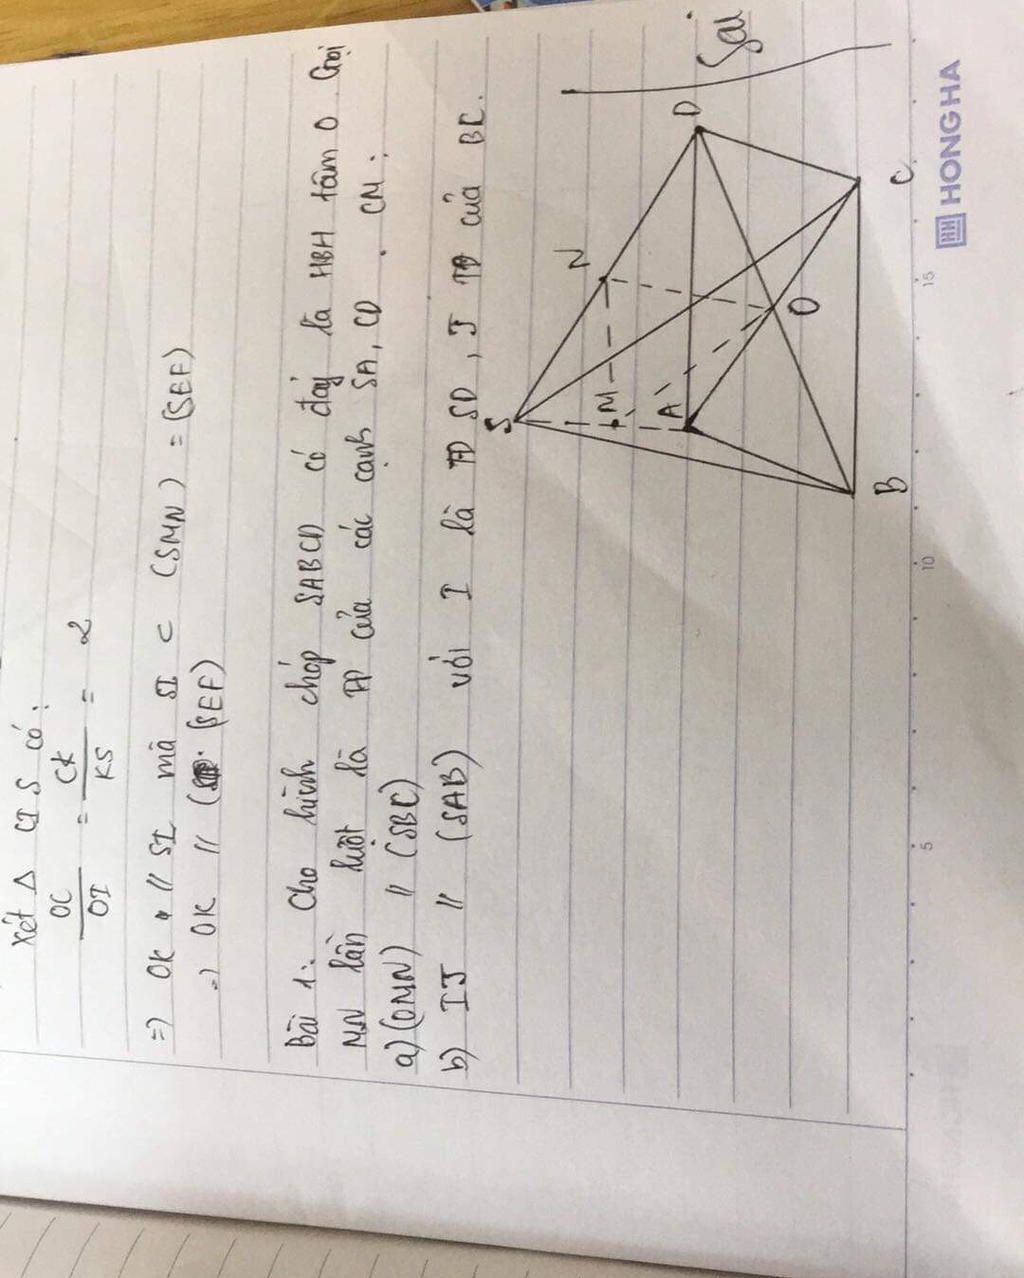 Xét Δ CIS có:
OC/OI = CK/KS = 2
=> OK // SI mà SI ⊂ (SMN) = (SEF)
=> OK // (SEF)
Bài 1: Cho hình chóp SABCD có đáy là HBH tâm O. Gọi
MN lần lượt là TĐ của các cạnh SA, CD. CM:
a) (OMN) // (SBC)
b) IJ // (SAB) với I là TĐ SD, J TĐ của BC.
S
N
D
Sai
M
A
O
B
C
5 10 15
HH HONG HA